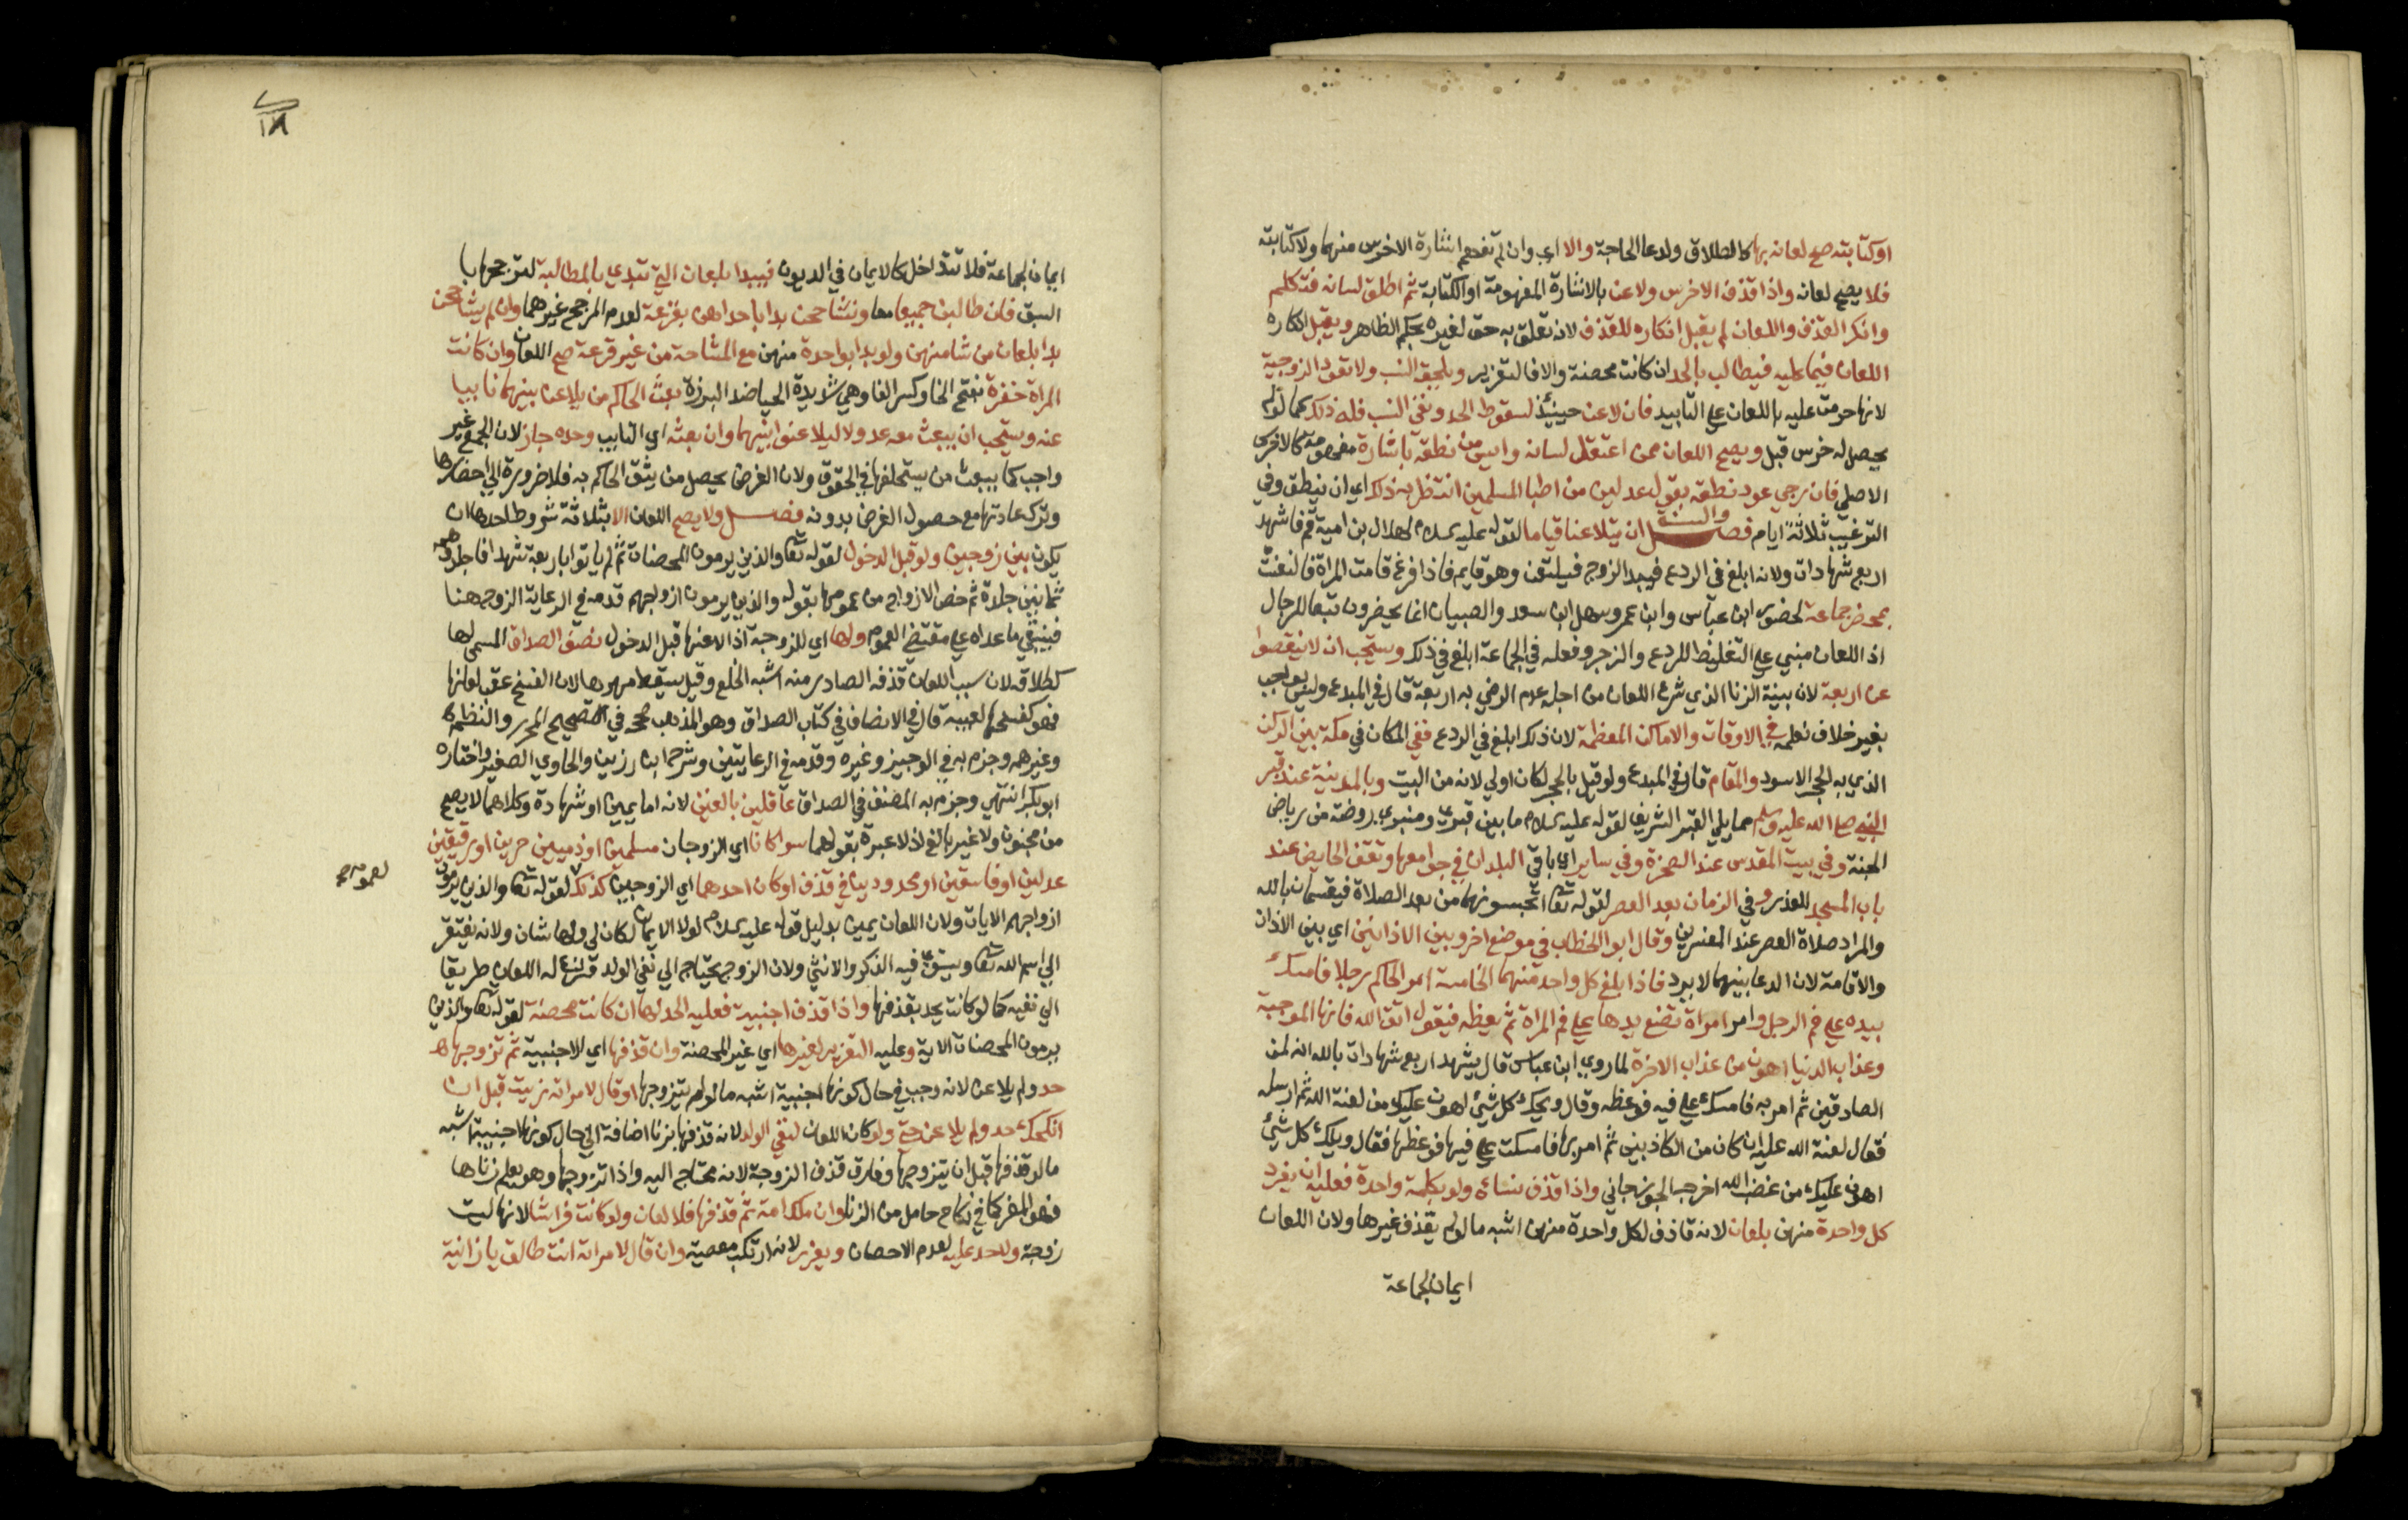 اوكتابته صح لعانه بها كالطلاق ولدعا الحاجة والا اي وان لم تفهم اشارة الاخرس منهما ولا كتابته
فلا يصح لعانه واذا قذف الاخرس ولاعن بالاشارة المفهومة او الكتابة ثم اطلق لسانه فتكلم
وانكر القذف واللعان لم يقبل انكاره للقذف لانه تعلق به حق لغيره بحكم الظاهر ويقبل انكاره
اللعان فيما عليه فيطالب بالحد ان كانت محصنة والا فالتعزير ويلحقه النسب ولا تعود الزوجية
لانها حرمت عليه باللعان علي التابيد فان لاعن حينئذ لسقوط الحد ونفي النسب فله ذلك كما لو لم
يحصل له خرس قبل ويصح اللعان ممن اعتقل لسانه وايس من نطقه باشارة مفهومة كالاخرس
الاصلي فان رجي عود نطقه بقول عدلين من اطبا المسلمين انتظر به ذلك اي ان ينطق وفي
الترغيب ثلاثة ايام فصل والسنة ان يتلاعنا قياما لقوله عليه السلام لهلال بن امية قم فاشهد
اربع شهادات ولانه ابلغ في الردع فيبدا الزوج فيلتعن وهو قايم فاذا فرغ قامت المراة فالتعنت
بمحضر جماعة لحضور ابن عباس وابن عمر وسهل ابن سعد والصبيان انما يحضرون تبعا للرجال
اذ اللعان مبني علي التغليظ للردع والزجر وفعله في الجماعة ابلغ في ذلك ويستحب ان لا ينقصوا
عن اربعة لان بينة الزنا الذي شرع اللعان من اجله عدم الرمي به اربعة قال في المبدع وليس بواجب
بغير خلاف نعلمه في الاوقات والاماكن المعظمة لان ذلك ابلغ في الردع ففي المكان في مكة بين الركن
الذي به الحجر الاسود والمقام قال في المبدع ولو قيل بالحجر لكان اولي لانه من البيت وبالمدينة عند قبر
النبي صلي الله عليه وسلم مما يلي القبر الشريف لقوله عليه السلام ما بين قبري ومنبري روضة من رياض
الجنة وفي بيت المقدس عند الصخرة وفي ساير اي باقي البلدان في جوامعها وتقف الحايض عند
باب المسجد للعذر وفي الزمان بعد العصر لقوله تعا تحبسونهما من بعد الصلاة فيقسمان بالله
والمراد صلاة العصر عند المفسرين وقال ابو الخطاب في موضع اخر وبين الاذانين اي بين الاذان
والاقامة لان الدعا بينهما لا يرد فاذا بلغ كل واحد منهما الخامسة امر الحاكم رجلا فامسك
بيده علي فم الرجل وامر امراة تضع يدها علي فم المراة ثم يعظه فيقول اتق الله فانها الموجبة
وعذاب الدنيا اهون من عذاب الاخرة لما روي ابن عباس قال يشهد اربع شهادات بالله انه لمن
الصادقين ثم امر به فامسك علي فيه فوعظه وقال ويحك كل شيئ اهون عليك من لعنة الله ثم ارسله
فقال لعنة الله عليه ان كان من الكاذبين ثم امر بها فامسكت علي فيها فوعظها فقال ويلك كل شيئ
اهون عليك من غضب الله اخرجه الجوزجاني واذا قذف نساه ولو بكلمة واحدة فعليه ان يفرد
كل واحدة منهن بلعان لانه قاذف لكل واحدة منهن اشبه ما لو لم يقذف غيرها ولان اللعان
ايمان لجماعة
١٨
ايمان لجماعة فلا تتداخل كالايمان في الديون فيبدا بلعان التي تبدي بالمطالبة لترجحها با
السبق فان طالبن جميعا معا وتشاححن بدا باحداهن بقرعة لعدم المرجح غيرهما وان لم يتشاححن
بدا بلعان من شا منهن ولو بدا بواحدة منهن مع المشاحة من غير قرعة صح اللعان وان كانت
المراة خفرة بفتح الخا وكسر الفا وهي شديدة الحيا ضد البرزة بعث الحاكم من يلاعن بينهما نايبا
عنه ويستحب ان يبعث معه عدولا ليلاعنوا بينهما وان بعثه اي النايب وحده جاز لان الجمع غير
واجب كما يبعث من يستحلفها في الحقوق ولان الغرض يحصل من يثق الحاكم به فلا ضرورة الي احضارها
وترك عادتها مع حصول الغرض بدونه فصل ولا يصح اللعان الا بثلاثة شروط احدها ان
يكون بين زوجين ولو قبل الدخول لقوله تعا والذين يرمون المحصنات ثم لم ياتوا باربعة شهدا فاجلدوهم
ثمانين جلدة ثم خص الازواج من عمومها بقوله والذين يرمون ازواجهم قدمه في الرعاية الزوجة هنا
فيبقي ما عداه علي مقتضي العموم ولها اي للزوجة اذا لاعنها قبل الدخول نصف الصداق المسمي لها
كطلاقه لان سبب اللعان قذفه الصادر منه اشبه الخلع وقيل يسقط مهرها لان الفسخ عقب لعانها
فهو كفسخها لعيبه قال في الانصاف في كتاب الصداق وهو المذهب صححه في التصحيح المحرر والنظم
وغيرهم وجزم به في الوجيز وغيره وقدمه في الرعايتين وشرحها ابن رزين والحاوي الصغير واختاره
ابو بكر انتهي وجزم به المصنف في الصداق عاقلين بالغين لانه اما يمين او شهادة وكلاهما لا يصح
من مجنون ولا غير بالغ اذ لا عبرة بقولهما سوا كانا اي الزوجان مسلمين او ذميين حرين او رقيقين
عدلين او فاسقين او محدودين في قذف او كان احدهما اي الزوجين كذلك لقوله تعا والذين يرمون
لعموم صح
ازواجهم الايات ولان اللعان يمين بدليل قوله عليه السلام لولا الايمان لكان لي ولها شان ولانه يفتقر
الي اسم الله تعا ويستوي فيه الذكر والانثي ولان الزوج يحتاج الي نفي الولد فشرع له اللعان طريقا
الي نفيه كما لو كانت يحد بقذفها واذا قذف اجنبية فعليه الحد لها ان كانت محصنة لقوله تعا والذين
يرمون المحصنات الاية وعليه التعزير لغيرها اي غير المحصنة وان قذفها اي الاجنبية ثم تزوجها
حد ولم يلاعن لانه وجب في حال كونها اجنبية اشبه ما لو لم يتزوجها او قال لامراته زنيت قبل ان
انكحك حد ولم يلاعن حتي ولو كان اللعان لنفي الولد لانه قذفها بزنا اضافه الي حال كونها اجنبية اشبه
ما لو قذفها قبل ان يتزوجها وفارق قذف الزوجة لانه محتاج اليه واذا تزوجها وهو يعلم زناها
فهو المفرط في نكاح حامل من الزنا وان ملك امة ثم قذفها فلا لعان ولو كانت فراشا لانها ليست
زوجة ولا حد عليه لعدم الاحصان ويعزر لانه ارتكب معصية وان قال لامراته انت طالق يا زانية